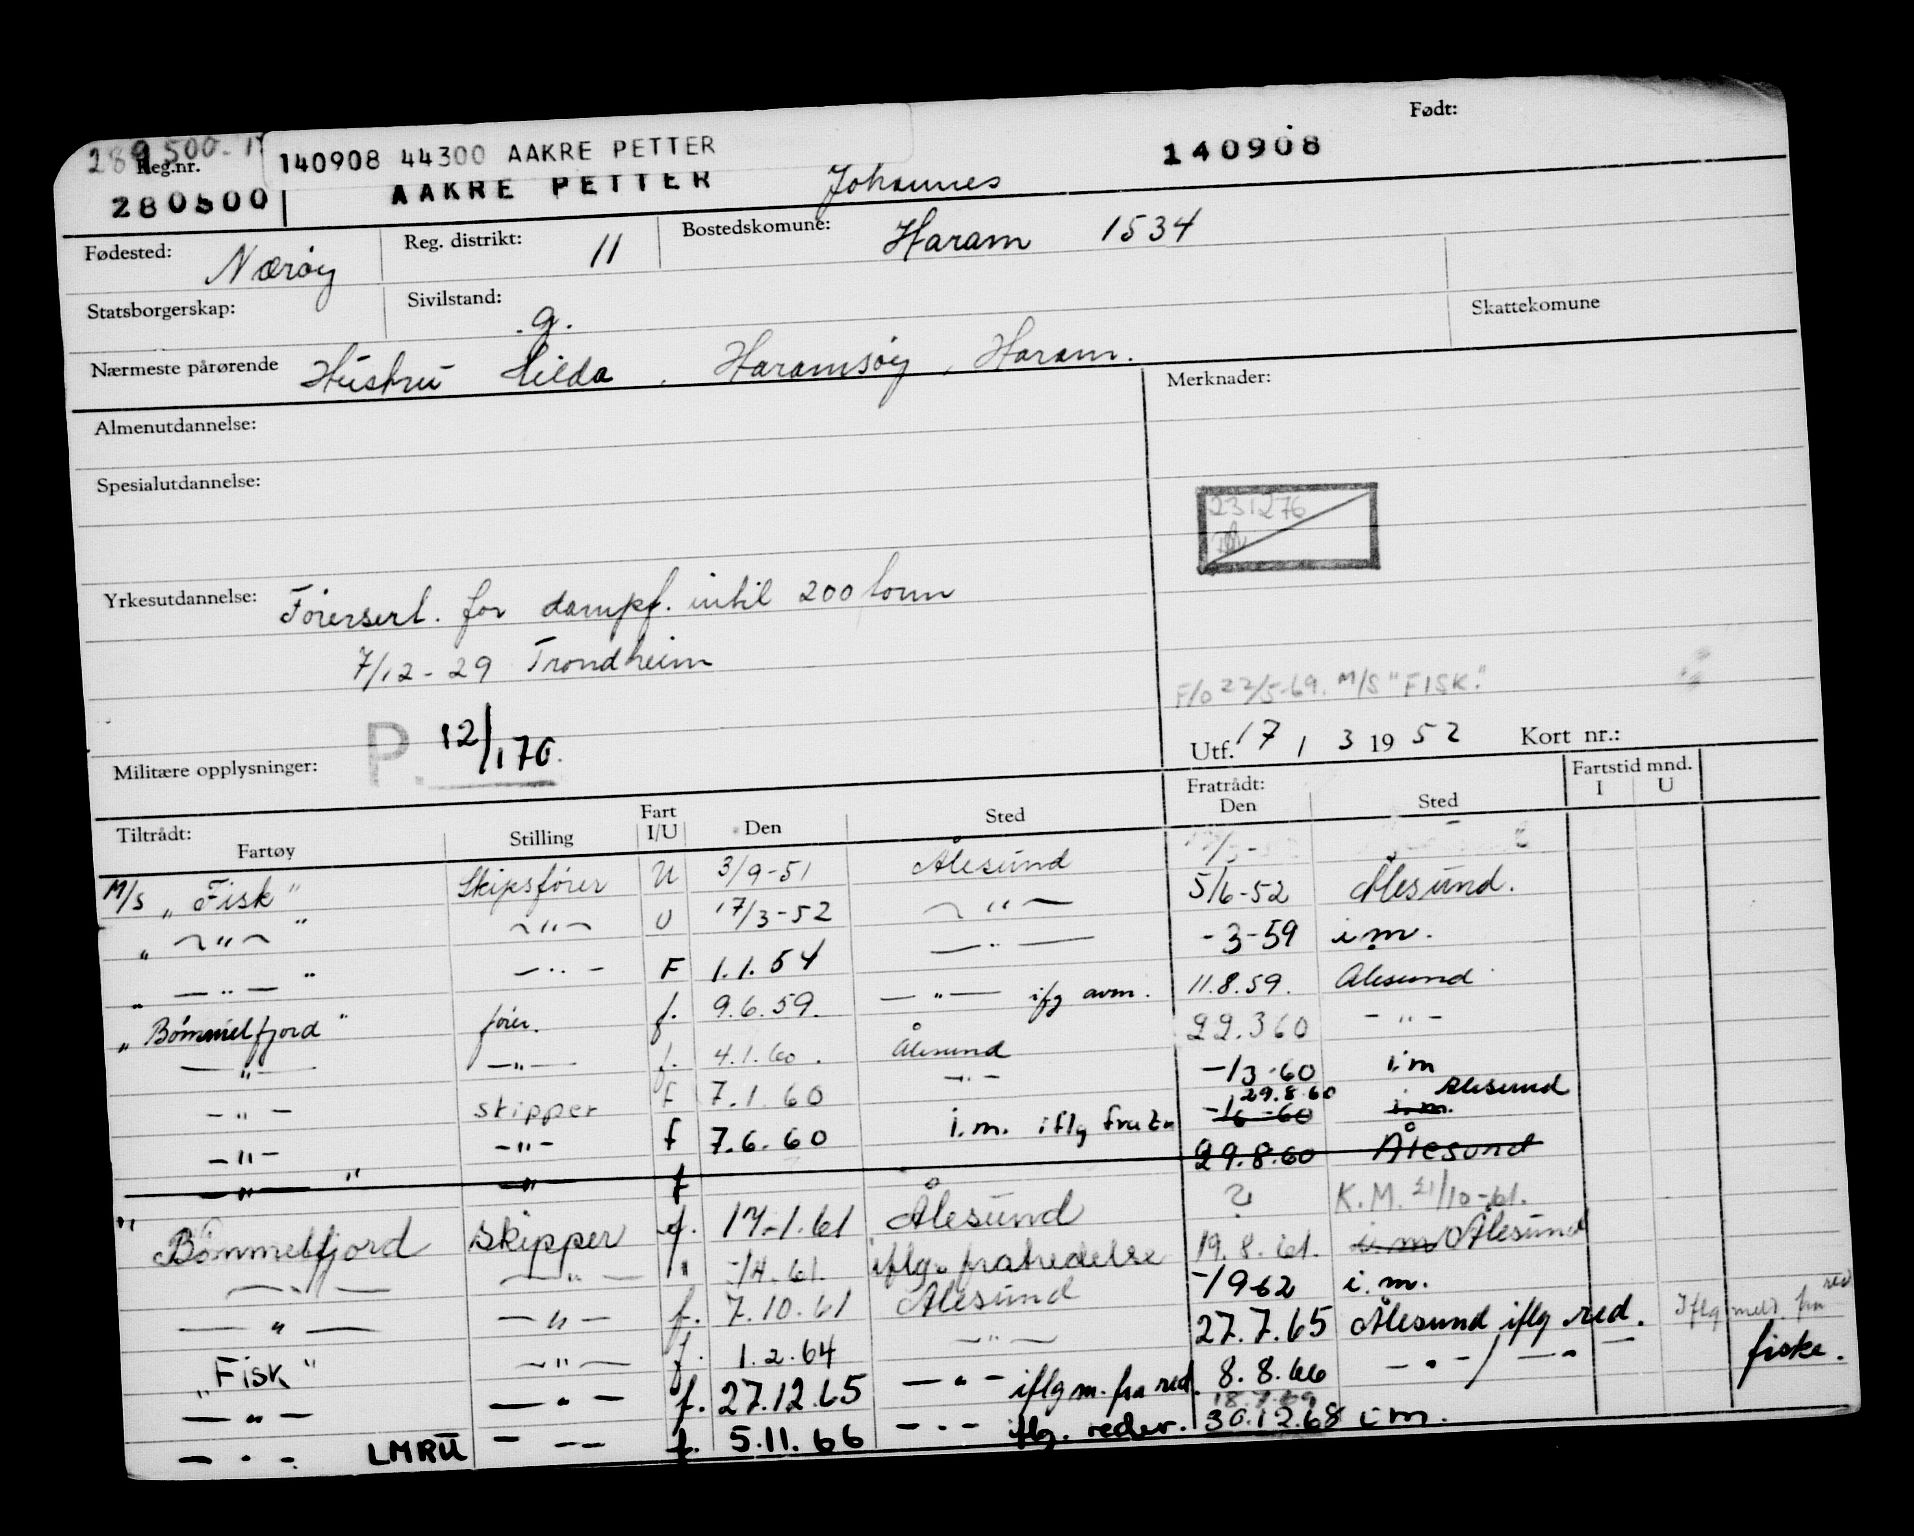 Født:
Reg.nr. 140908 44300 AAKRE PETTER 140908
280500 AAKRE PETTER Johannes
Fødested: Nærøy Reg. distrikt: 11 Bostedskomune: Haram 1534
Statsborgerskap: Sivilstand: .g. Skattekomune
Nærmeste pårørende Hustru Hilda, Haramsøy, Haram.
Almenutdannelse: Merknader:
Spesialutdannelse:
231276
Yrkesutdannelse: Førersert. for dampf. intil 200 tonn
7/12-29 Trondheim
F/o 22/5-69. M/S "FISK."
P. 12/170.
Militære opplysninger: Utf. 17 / 3 19 52 Kort nr.:
Tiltrådt: Fratrådt: Fartstid mnd.
Fartøy Stilling Fart I/U Den Sted Den Sted I U
M/S „Fisk" Skipsfører U 3/9-51 Ålesund
„ —"— " —"— U 17/3-52 —"— 5/6-52 Ålesund.
„ —"— " —"— F 1.1.54 —"— -3-59 i.m.
„Bømmelfjord" fører. f. 9.6.59. —"— ifg avm. 11.8.59. Ålesund
—"— —"— f. 4.1.60. Ålesund 22.3 60 —"—
—"— skipper f 7.1.60 —"— -/3-60 i.m
29.8.60 Ålesund
—"— —"— f 7.6.60 i.m. iflg fratr -/6-60 i.m.
—"— " —"— f 29.8.60 Ålesund
" Bømmelfjord skipper f. 17.-1.61 Ålesund ? K.M. 21/10-61.
—"— —"— " -/4.61. iflg. fratredelse 19.8.61. i.m Ålesund
—"— —"— f. 7.10.61 Ålesund -/9 62 i.m.
„Fisk" —"— f. 1.2.64 —"— 27.7.65 Ålesund iflg red. Iflg meld. fra red
—"— —"— f. 27.12.65 —"— iflg m. fra red. 8.8.66 —"— / —"— fiske.
18.7.69
—"— LMRU —"— f. 5.11.66 —"— iflg. reder. 30.12.68 i m.